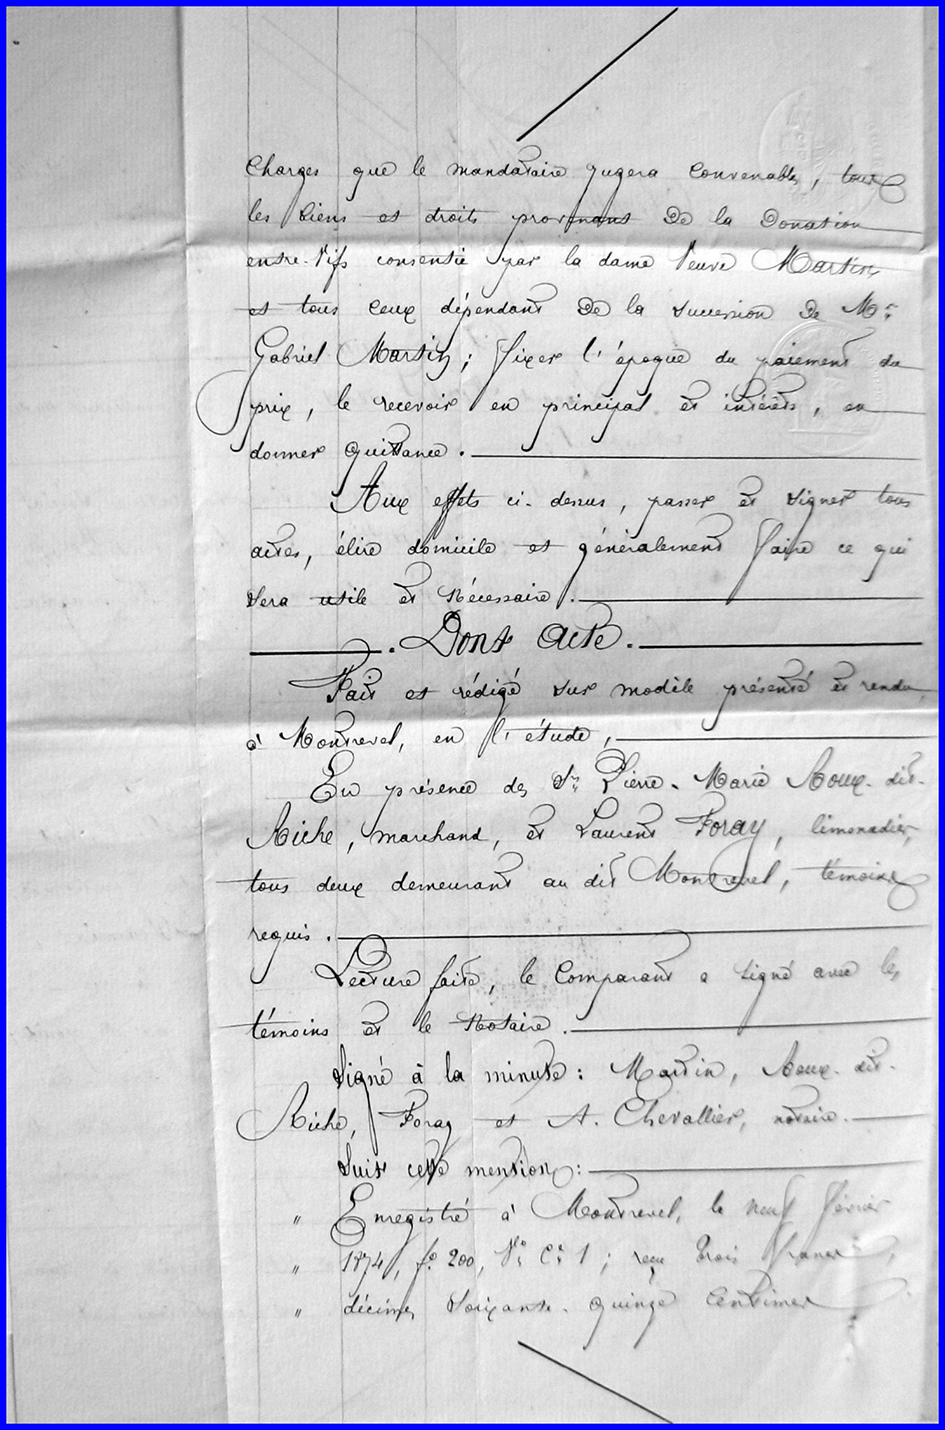 charges que le mandataire jugera convenables, tous
les biens et droits provenant de la Donation
entre-vifs consentie par la dame Veuve Martin
et tous ceux dépendant de la succession de Mr
Gabriel Martin; fixer l'époque du paiement du
prix, le recevoir en principal et intérêts, en
donner quittance.
Aux effets ci-dessus, passer et signer tous
actes, élire domicile et généralement faire ce qui
sera utile et nécessaire.
Dont acte.
Fait et rédigé sur modèle présenté et rendu
à Montrevel, en l'étude,
En présence des Srs Pierre-Marie Roux-dit-
Riche, marchand, et Laurent Foray, limonadier,
tous deux demeurant au dit Montrevel, témoins
requis.
Lecture faite, le comparant a signé avec les
témoins et le Notaire.
Signé à la minute: Martin, Roux-dit-
Riche, Foray et A. Chevallier, notaire.
Suit cette mention:
" Enregistré à Montrevel, le neuf février
" 1874, fo 200, Vo Ce 1; reçu trois francs,
" décimes soixante-quinze centimes